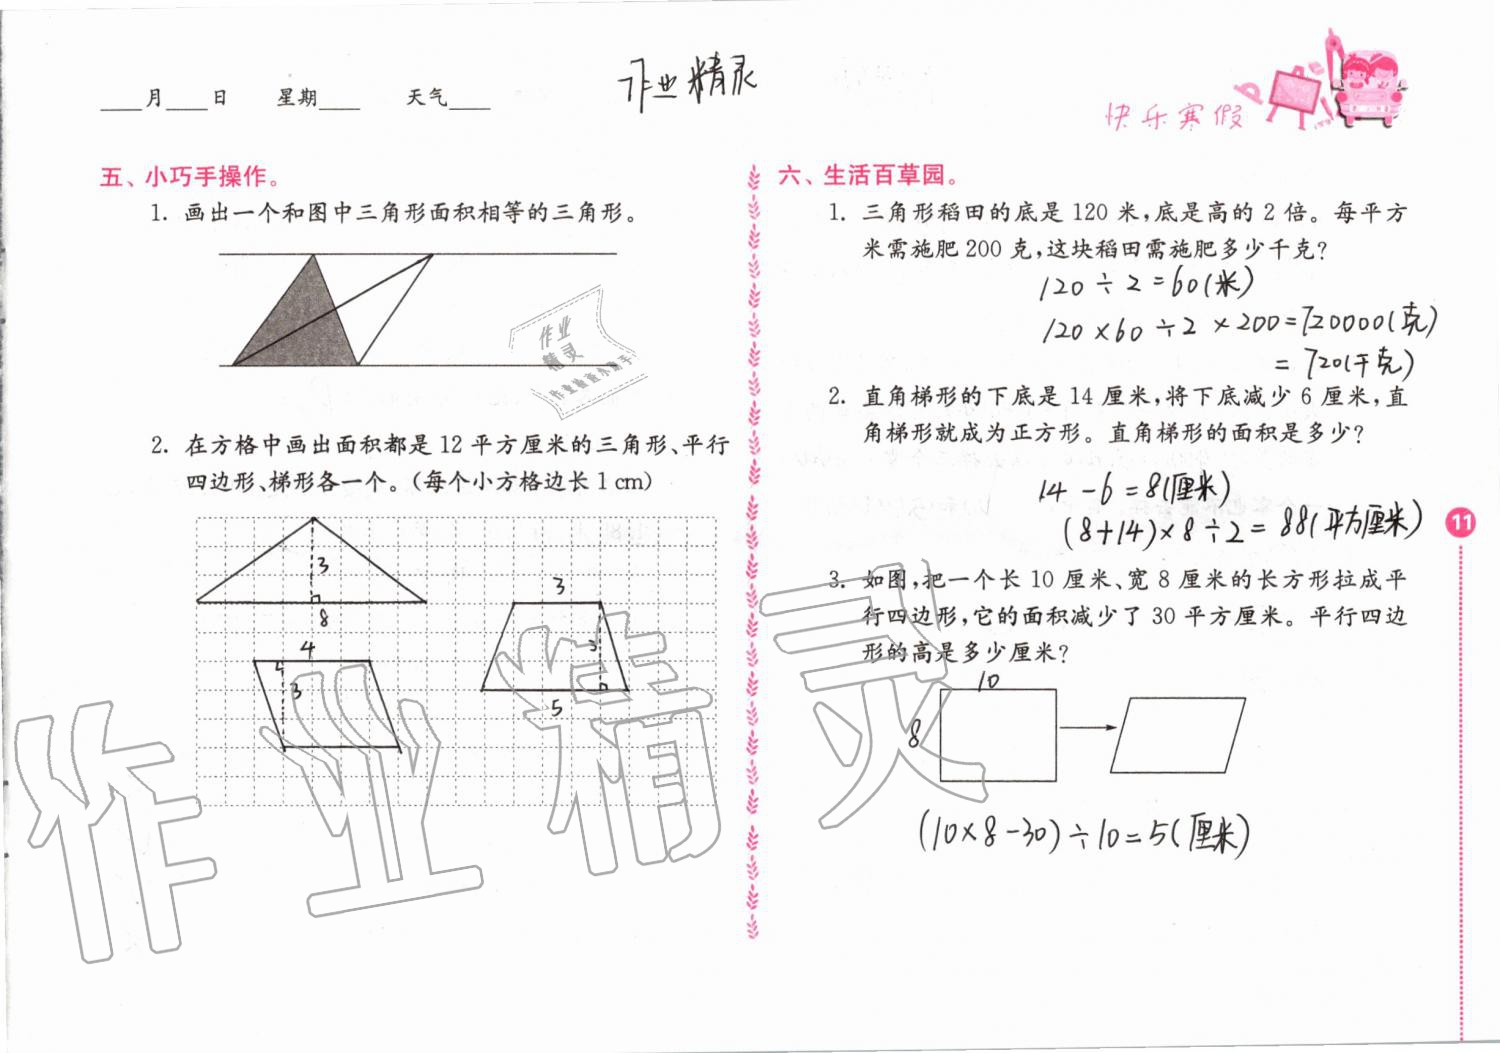 ____月____日 星期____ 天气____
作业精灵
快乐寒假
五、小巧手操作。
1. 画出一个和图中三角形面积相等的三角形。
作业
精灵
2. 在方格中画出面积都是 12 平方厘米的三角形、平行
四边形、梯形各一个。(每个小方格边长 1 cm)
3
8
4
3
3
3
5
六、生活百草园。
1. 三角形稻田的底是 120 米,底是高的 2 倍。每平方
米需施肥 200 克,这块稻田需施肥多少千克?
120÷2=60(米)
120×60÷2×200=720000(克)
=720(千克)
2. 直角梯形的下底是 14 厘米,将下底减少 6 厘米,直
角梯形就成为正方形。直角梯形的面积是多少?
14-6=8(厘米)
(8+14)×8÷2=88(平方厘米)
3. 如图,把一个长 10 厘米、宽 8 厘米的长方形拉成平
行四边形,它的面积减少了 30 平方厘米。平行四边
形的高是多少厘米?
10
8
(10×8-30)÷10=5(厘米)
11
作业精灵